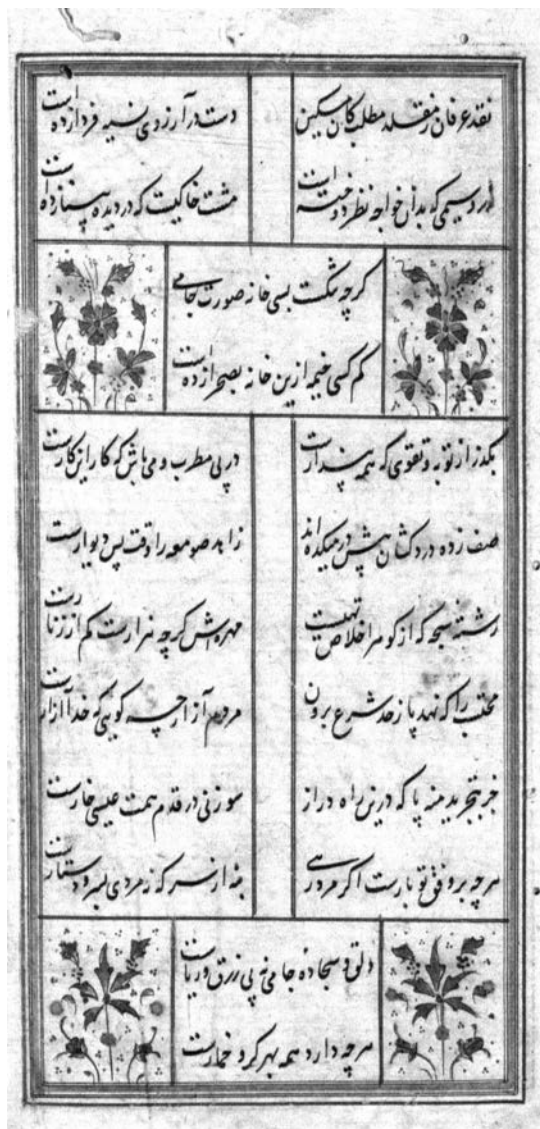 نقد عرفان ز مقلد مطلب کان مسکین
دست در آرزوی نسیه فردا زده است
در سیمی که بدان خواجه نظر دوخته است
مشت خاکیست که در دیده بینا زده است
گرچه بشکست بسی خانه صورت جامی
کم کسی خیمه ازین خانه بصحرا زده است
بگذر از توبه و تقوی که همه پندارست
در پی مطرب و می باش که کار این کارست
صف زده دردکشان پیش در میکده اند
زاهد صومعه را وقت پس دیوارست
رشته سبحه که از گوهر اخلاص تهیست
مهره اش گرچه هزارست کم از زنارست
محتسب را که نهد پا ز حد شرع برون
مردم آزار چه گویی که خدا آزارست
جز بتجرید منه پا که درین راه دراز
سوزنی در قدم همت عیسی خارست
هرچه بر فرق تو بارست اگر مرد رهی
بنه از سر که نه مردی بسر و دستارست
دلق و سجاده جامی نه پی زرق و ریاست
هرچه دارد همه بهر گرو خمارست